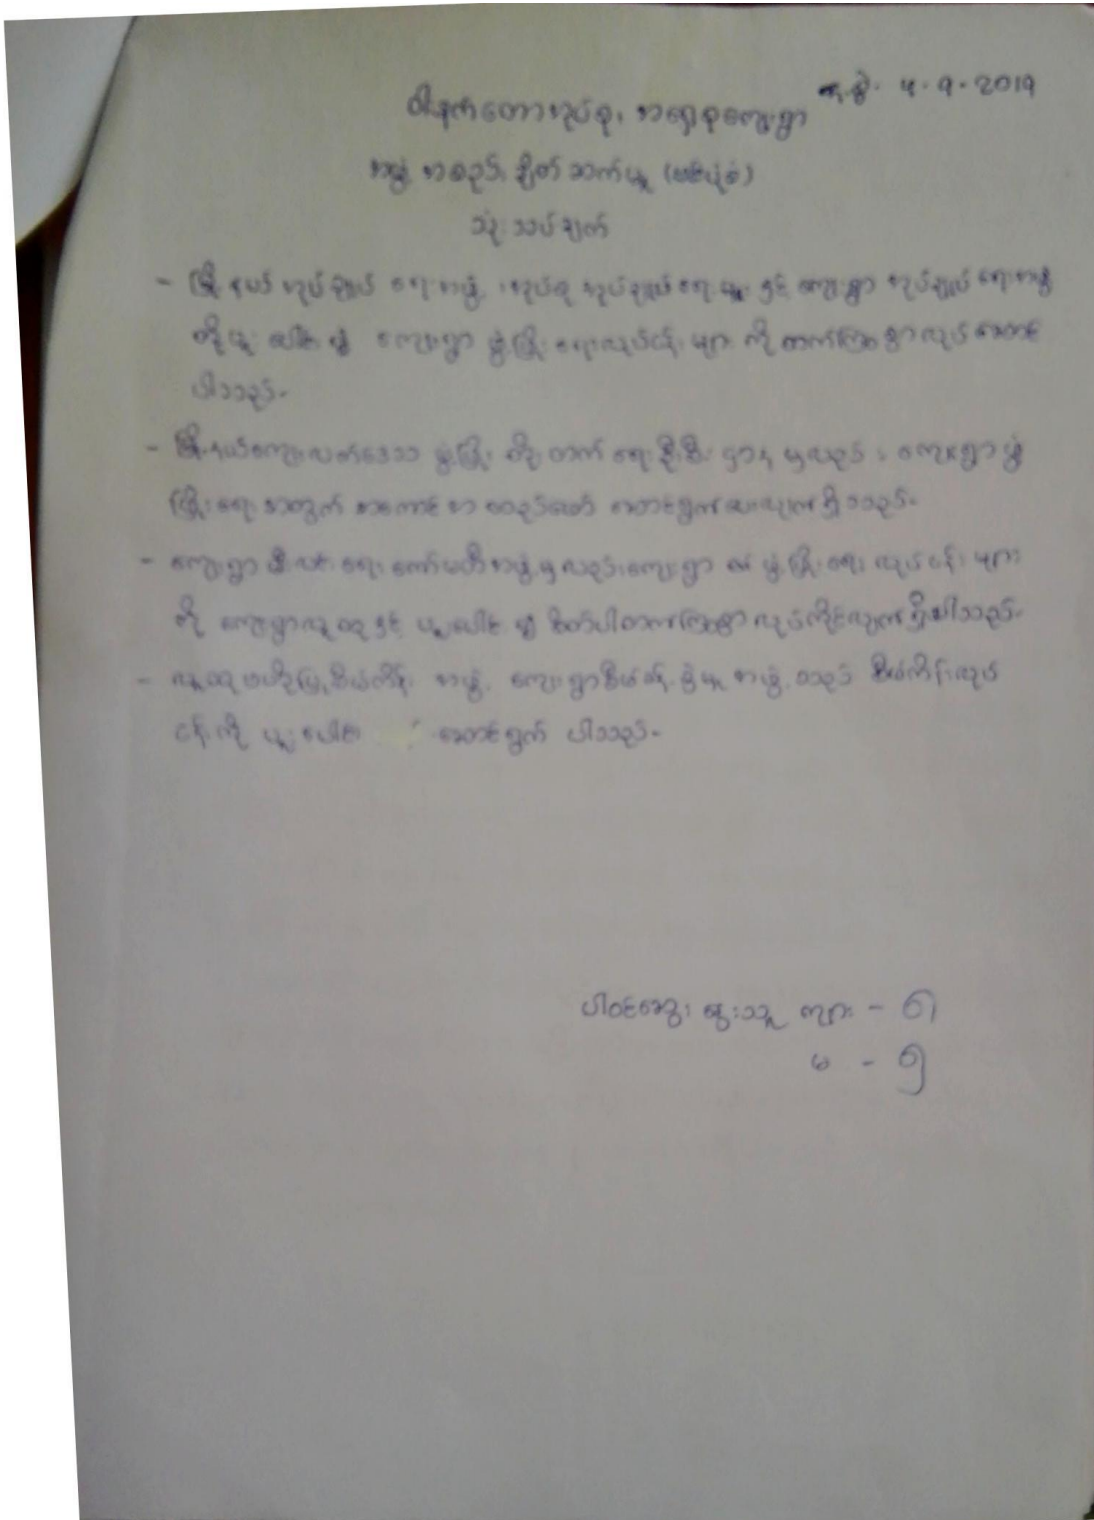 ရက်စွဲ- ၅-၉-2019
ဝါးနက်တောအုပ်စု၊ အရှေ့စုကျေးရွာ
အဖွဲ့အစည်းချိတ်ဆက်မှု (ဗင်းပုံစံ)
သုံးသပ်ချက်
- မြို့နယ်အုပ်ချုပ်ရေးအဖွဲ့၊ အုပ်စုအုပ်ချုပ်ရေးမှူးနှင့် ကျေးရွာအုပ်ချုပ်ရေးအဖွဲ့
တို့ပူးပေါင်း၍ ကျေးရွာဖွံ့ဖြိုးရေးလုပ်ငန်းများကို တက်ကြွစွာလုပ်ဆောင်
ပါသည်။
- မြို့နယ်ကျေးလက်ဒေသဖွံ့ဖြိုးတိုးတက်ရေးဦးစီးဌာနမှလည်း ကျေးရွာဖွံ့
ဖြိုးရေးအတွက် အကောင်အထည်ဖော် ဆောင်ရွက်ပေးလျက်ရှိသည်။
- ကျေးရွာမီးလင်းရေးကော်မတီအဖွဲ့မှလည်း ကျေးရွာ ဖွံ့ဖြိုးရေးလုပ်ငန်းများ
ကို ကျေးရွာလူထုနှင့် ပူးပေါင်း၍ စိတ်ပါတက်ကြွစွာလုပ်ကိုင်လျက်ရှိပါသည်။
- လူထုဗဟိုပြုစီမံကိန်းအဖွဲ့ ကျေးရွာစီမံခန့်ခွဲမှုအဖွဲ့သည် စီမံကိန်းလုပ်
ငန်းကို ပူးပေါင်း ဆောင်ရွက်ပါသည်။
ပါဝင်ဆွေးနွေးသူ ကျား - ၈
မ - ၅